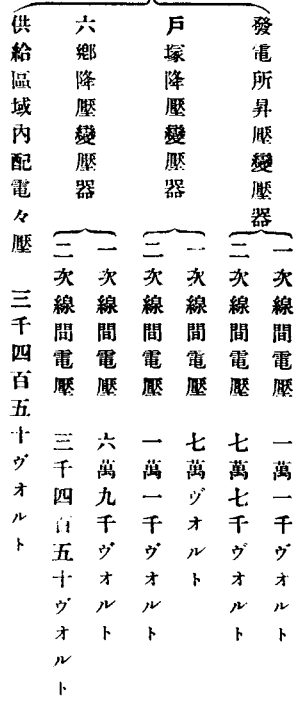 發電所昇壓變壓器
一次線間電壓 一萬一千ヴオルト
二次線間電壓 七萬七千ヴオルト
戸塚降壓變壓器
一次線間電壓 七萬ヴオルト
二次線間電壓 一萬一千ヴオルト
六鄕降壓變壓器
一次線間電壓 六萬九千ヴオルト
二次線間電壓 三千四百五十ヴオルト
供給區域內配電々壓 三千四百五十ヴオルト